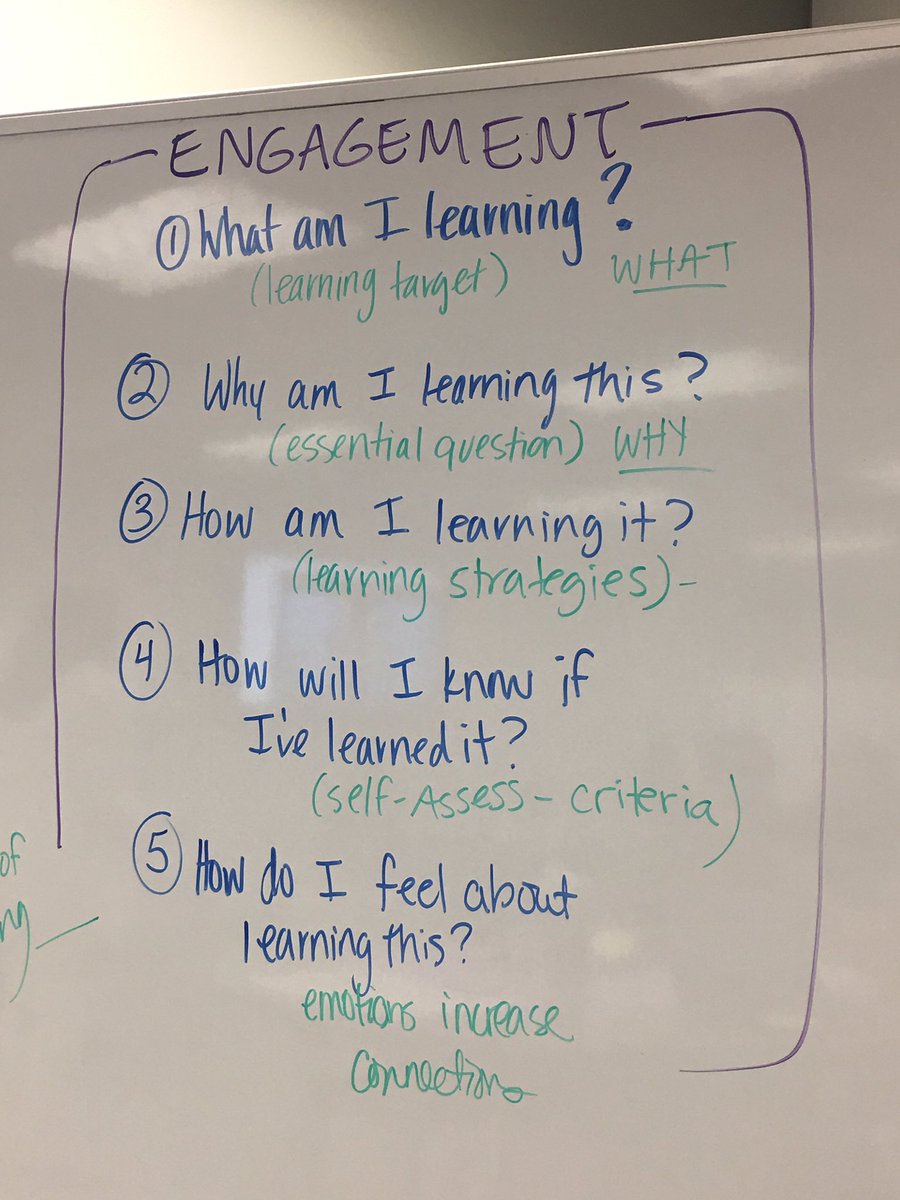 ENGAGEMENT
① What am I learning?
(learning target) WHAT
② Why am I learning this?
(essential question) WHY
③ How am I learning it?
(learning strategies)-
④ How will I know if
I've learned it?
(self-Assess - criteria)
⑤ How do I feel about
learning this?
emotions increase
connections
of